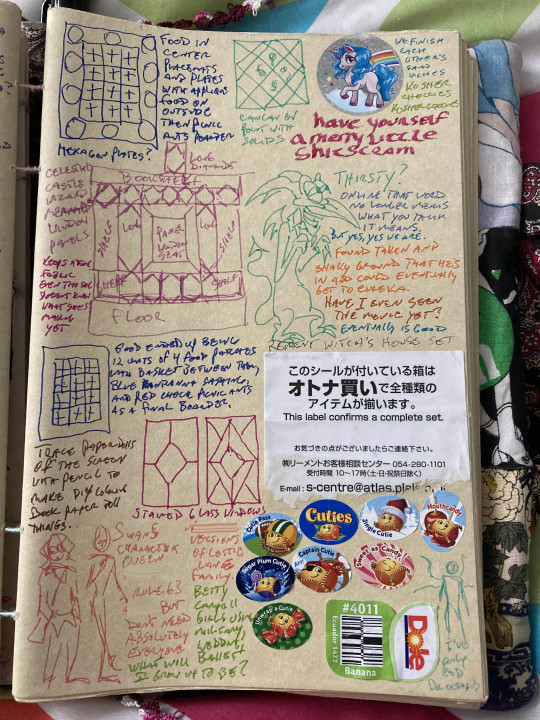 FOOD IN
CENTER
PLACEMATS
AND PLATES
WITH APPLIQUE
FOOD ON
OUTSIDE
THEN PICNIC
ANTS BORDER
HEXAGON PLATES?
CANCAN BE
POINT WITH
SOLIDS
WE FINISH
EACH
OTHER'S
SAND
WICHES
KOSHER
CHEXXIES
have yourself
a merry little
shitscream
LONG
DIAMONDS
BOOKSHELF
CASTLE
WINDOW
PANELS
SHELF
LONG
PANEL
WINDOW
SEAT
LONG
SHELF
SHELF
SHELF
FLOOR
KEEPS
FABRIC
EVEN THO SHE
DOESN'T KNOW
WHAT SHE'S
MAKING
YET
THIRSTY?
ONLINE THAT WORD
NO LONGER MEANS
WHAT YOU THINK
IT MEANS.
BUT YES, YES WE ARE.
FOUND TAKEN AND
SHAKY GROUND THAT HES
IN AND COULD EVENTUALLY
GET TO EUREKA.
HAVE I EVEN SEEN
THE MOVIE YET?
EVENTUALLY IS GOOD
REMENT WITCH'S HOUSE SET
FOOD ENDED UP BEING
12 UNITS OF 4 FOOD PATCHES
WITH BASKET BETWEEN THEM,
BLUE BANDANNA SASHING,
AND RED CHECK PICNIC ANTS
AS A FINAL BORDER.
このシールが付いている箱は
オトナ買いで全種類の
アイテムが揃います。
This label confirms a complete set.
お気づきの点がございましたらご連絡下さい。
㈱リーメントお客様相談センター 054-280-1101
受付時間 10〜17時(土·日·祝祭日除く)
E-mail : s-centre@atlas.pl
TRACE PAPER DOLLS
OFF THE SCREEN
WITH PENCIL TO
MAKE DIY COLORING
BOOK PAPER DOLL
THINGS.
STAINED GLASS WINDOWS
Cutie Pass
Cuties
Jingle Cutie
Mouthcandy
Sugar Plum Cutie
Captain Cutie
Arr!
Sweet as Candy
Unwrap a Cutie
SWAN'S
CHARACTER
QUEEN
RULE 63
BUT
DON'T NEED
ABSOLUTELY
EVERYONE
VERSIONS
OF CELTIC
LANE
FAMILY
BETTY
GIRLS USING
MILITARY,
WEDDING,
BALLET
WHAT WILL
I GROW UP TO BE?
#4011
Ecuador 3422
Dole
Banana
I'VE
ONLY
GOD